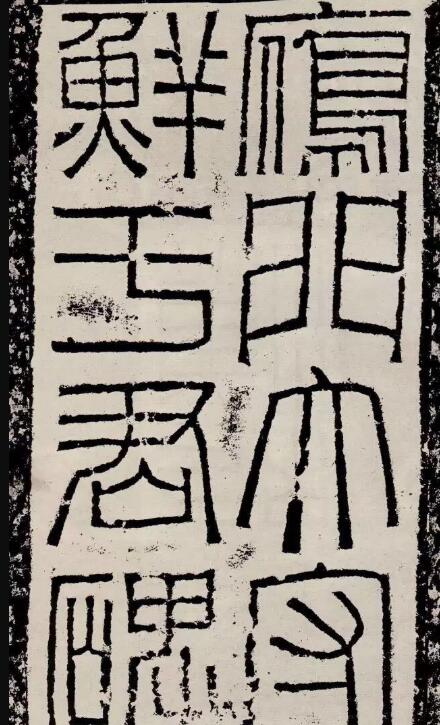 鴈門太守
鮮于君碑